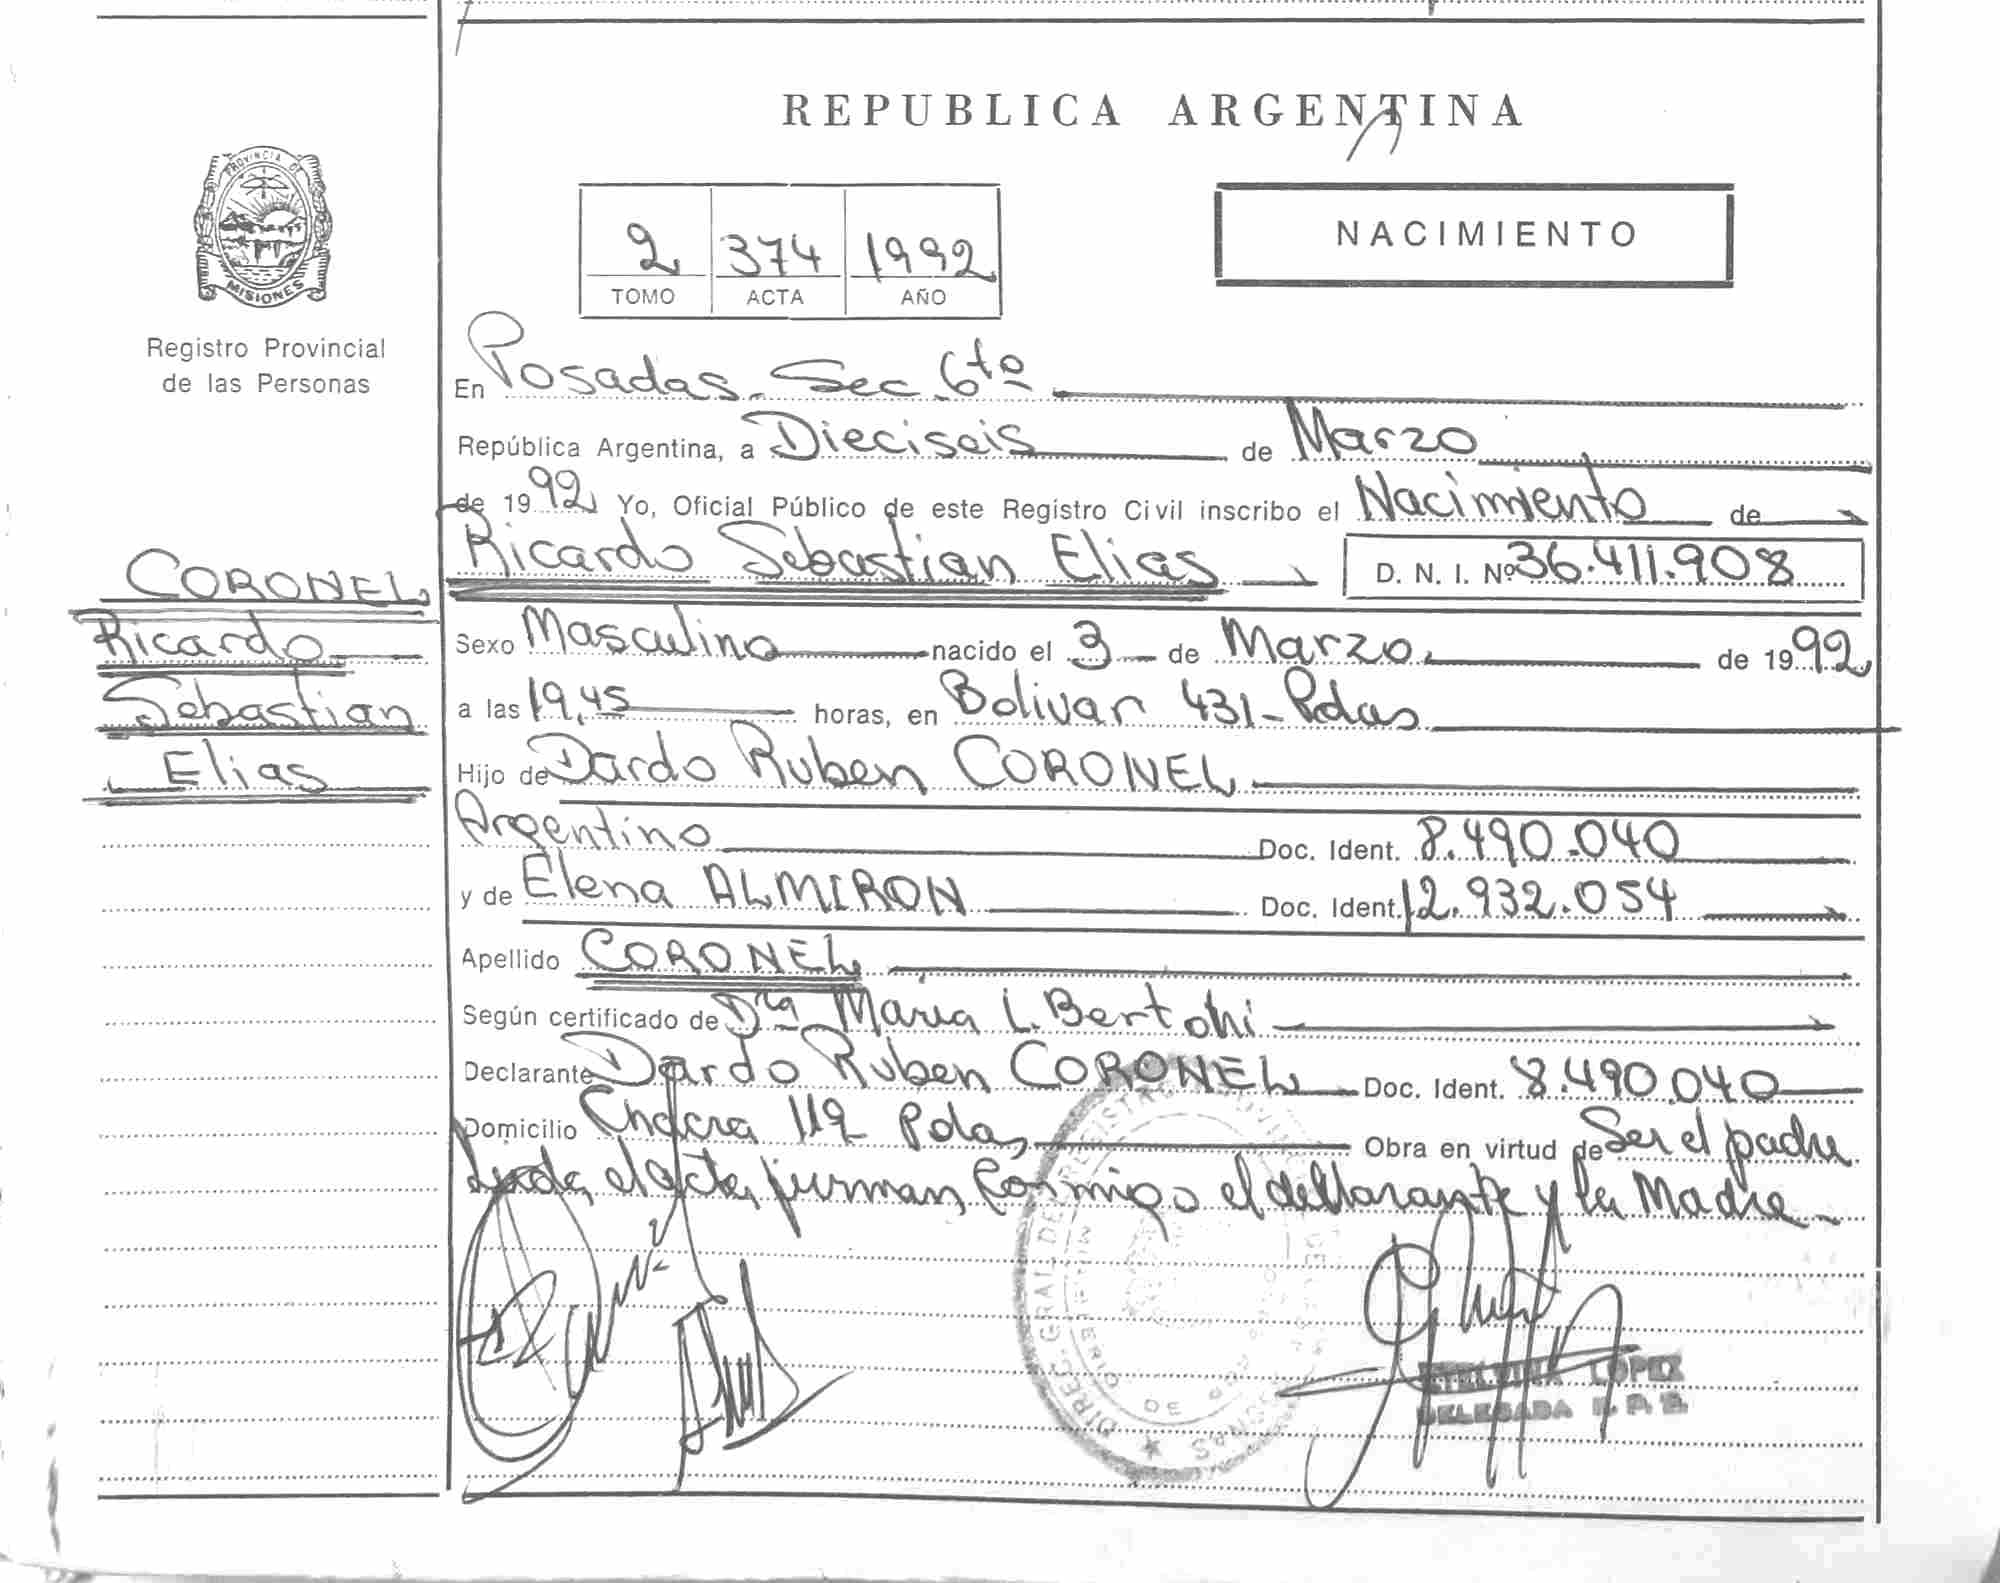 REPUBLICA ARGENTINA
PROVINCIA DE
MISIONES
Registro Provincial
de las Personas
2 374 1992
TOMO ACTA AÑO
NACIMIENTO
En Posadas. Sec. 6ta
República Argentina, a Dieciseis de Marzo
de 1992 Yo, Oficial Público de este Registro Civil inscribo el Nacimiento de
Ricardo Sebastian Elias D. N. I. Nº 36.411.908
CORONEL
Ricardo
Sebastian
Elias
Sexo Masculino nacido el 3 de Marzo de 1992
a las 19,45 horas, en Bolivar 431 - Pdas
Hijo de Dardo Ruben CORONEL
Argentino Doc. Ident. 8.490.040
y de Elena ALMIRON Doc. Ident. 12.932.054
Apellido CORONEL
Según certificado de Dra Maria L. Bertoni
Declarante Dardo Ruben CORONEL Doc. Ident. 8.490.040
Domicilio Chacra 112 Pdas Obra en virtud de Ser el padre
Leida el acta, firman conmigo el declarante y la Madre.-
LOPEZ
DELEGADA R. P. P.